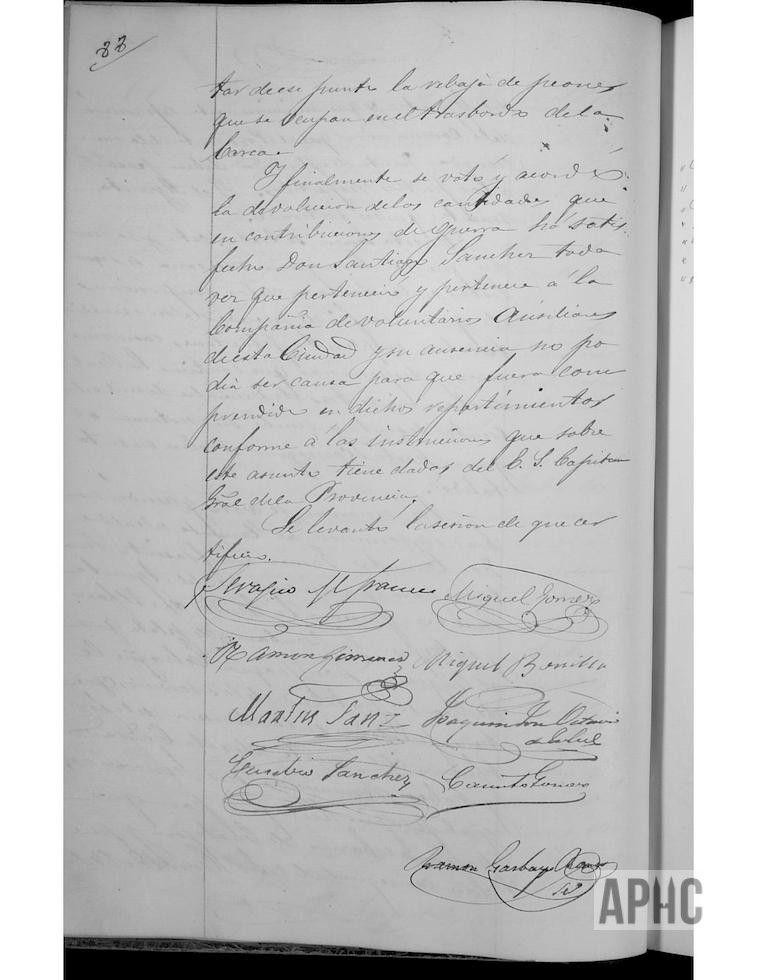 33
tar de ese punto la rebaja de peones
que se ocupan en el trasbordo de la
barca.
Y finalmente se votó y acordó
la devolucion de las cantidades que
en contribuciones de guerra há satis
fecho Don Santiago Sanchez toda
vez que perteneció y pertenece á la
Compañia de voluntarios Ausiliares
de esta Ciudad y su ausencia no po
dia ser causa para que fuera com
prendido en dichos repartimientos
conforme á las instrucciones que sobre
este asunto tiene dadas el E. S. Capitan
Gral de la Provincia.
Se levantó la sesion de que cer
tifico.
Serapio Miguel Gomez
Ramon Gimenez Miguel Bonilla
Martin Sanz Joaquin
Eusebio Sanchez
Ramon Garbayo
APHC